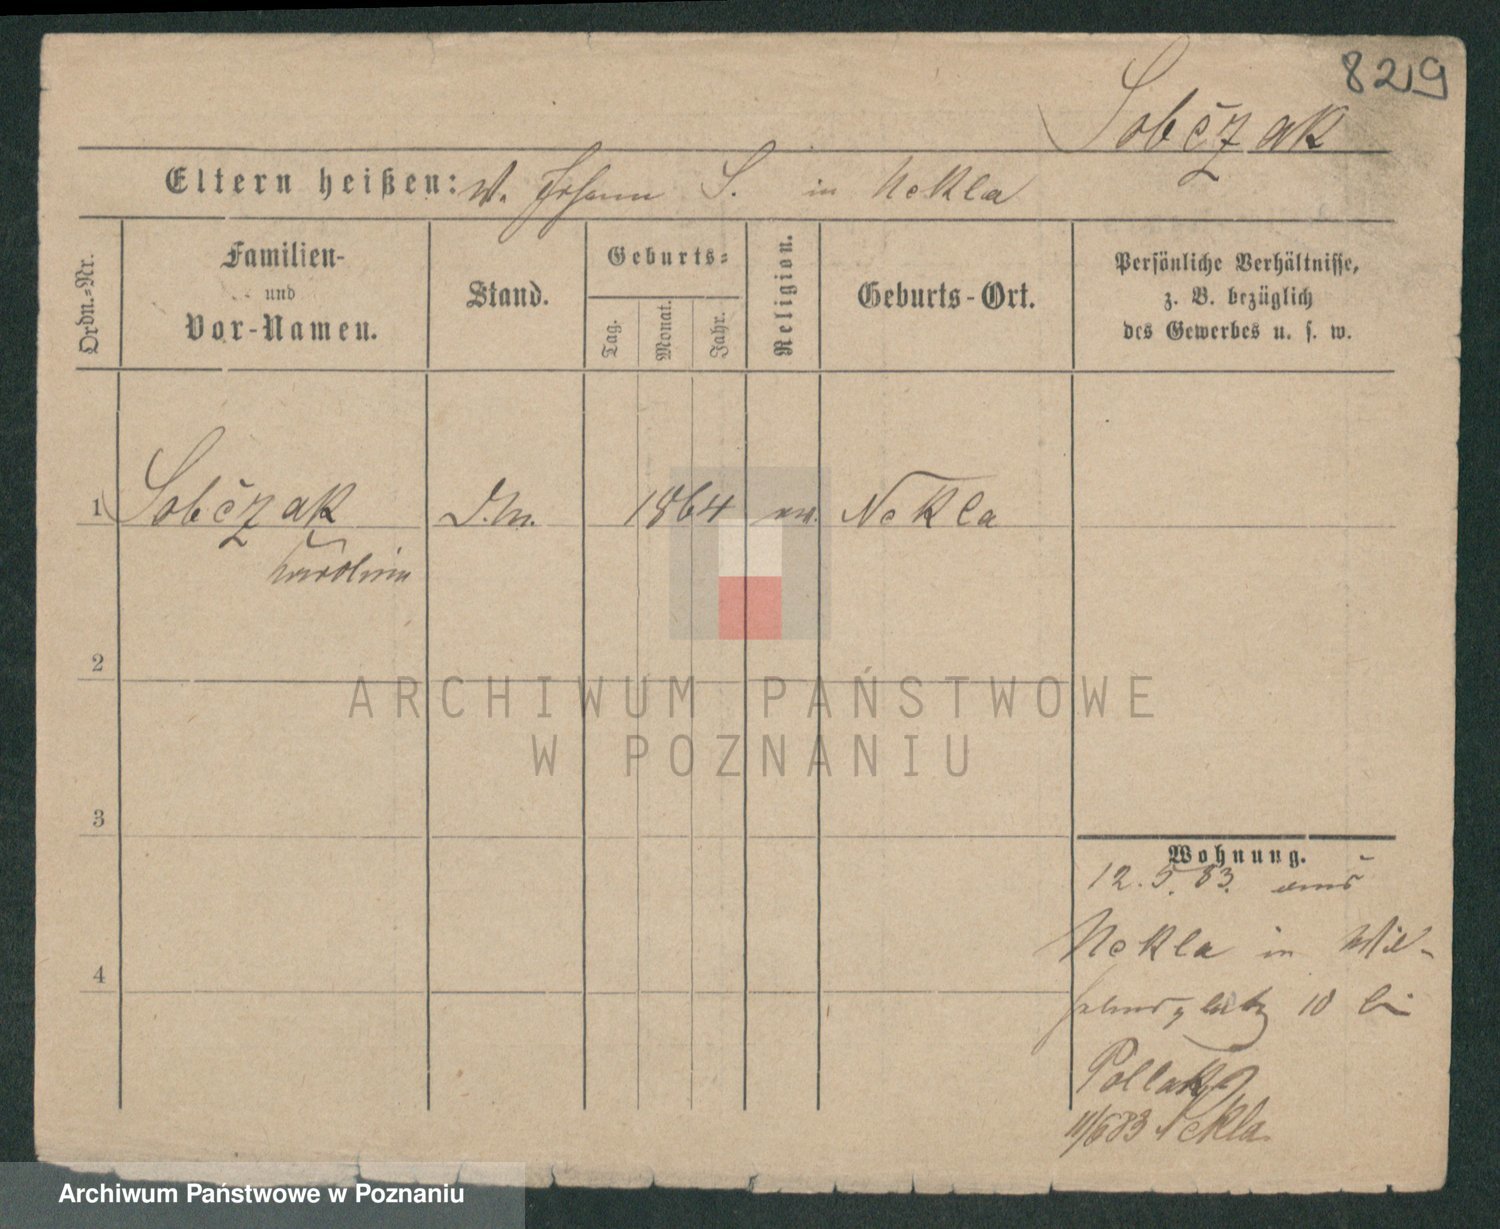 829
Sobčzak
Eltern heißen: W. Johann S. in Nekla
Ordn.=Nr.
Familien-
und
Vor-Namen.
Stand.
Geburts=
Tag.
Monat.
Jahr.
Religion.
Geburts-Ort.
Persönliche Verhältnisse,
z. B. bezüglich
des Gewerbes u. s. w.
1 Sobčzak D.M. 1864 Nekla
2
3
4
Wohnung.
12. 5. 83. aus
Nekla in Wil-
helmsplatz 10 bei
Pollak
11/6 83 Nekla
ARCHIWUM PAŃSTWOWE
W POZNANIU
Archiwum Państwowe w Poznaniu